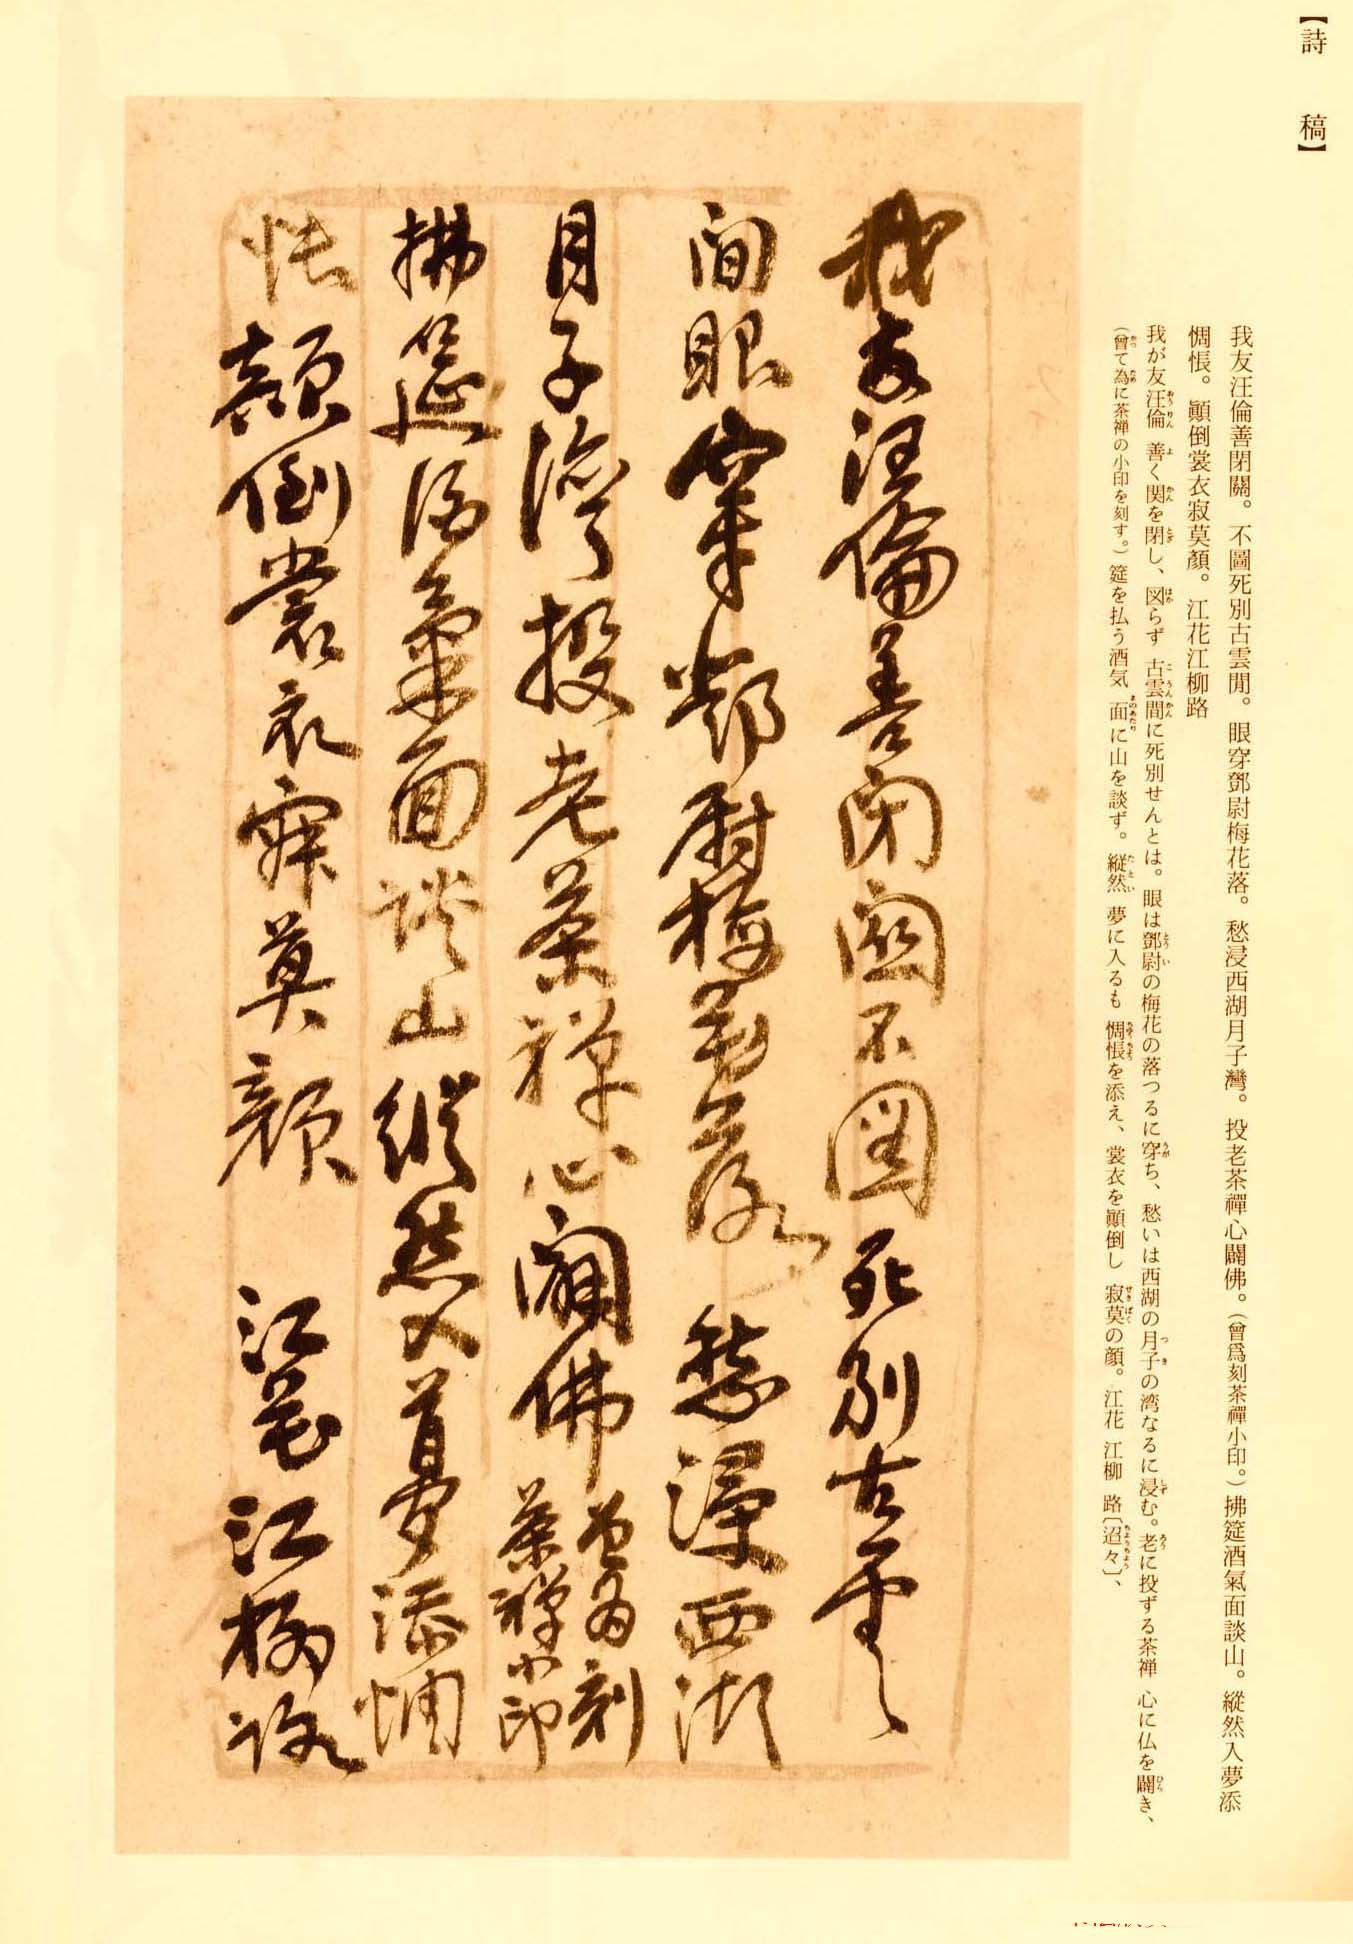 【詩稿】
我友汪倫善閉關。不圖死別古雲閒。眼穿鄧尉梅花落。愁浸西湖月子灣。投老茶禪心闢佛。(曾爲刻茶禪小印。)拂筵酒氣面談山。縱然入夢添
惆悵。顚倒裳衣寂莫顏。江花江柳路
我が友汪倫 善く関を閉し、図らず 古雲間に死別せんとは。眼は鄧尉の梅花の落つるに穿ち、愁いは西湖の月子の湾なるに浸む。老に投ずる茶禅 心に仏を闢き、
(曾て為に茶禅の小印を刻す。)筵を払う酒気 面に山を談ず。縦然 夢に入るも 惆悵を添え、裳衣を顚倒し 寂莫の顔。江花 江柳 路〔迢々〕、
我友汪倫善閉關不圖死別古雲
間眼穿鄧尉梅花落愁浸西湖
月子灣投老茶禪心闢佛曾為刻茶禪小印
拂筵酒氣面談山縱然入夢添惆
悵顛倒裳衣寂莫顏 江花江柳路